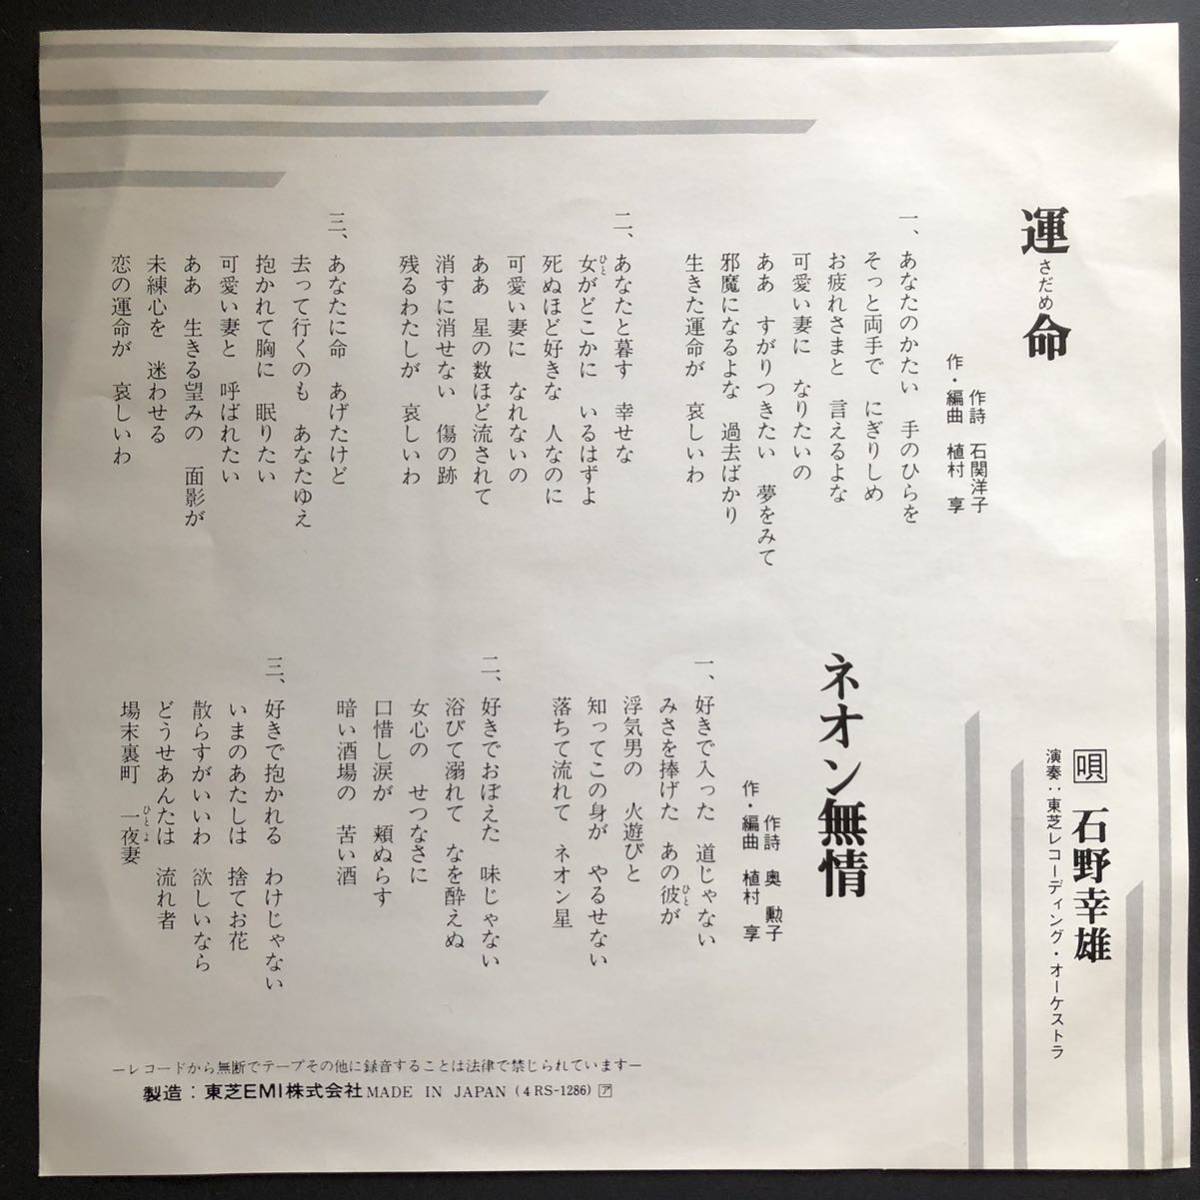 運命
さだめ
作詩 石関洋子
作・編曲 植村 享
一、あなたのかたい 手のひらを
そっと両手で にぎりしめ
お疲れさまと 言えるよな
可愛い妻に なりたいの
ああ すがりつきたい 夢をみて
邪魔になるよな 過去ばかり
生きた運命が 哀しいわ
二、あなたと暮す 幸せな
女がどこかに いるはずよ
ひと
死ぬほど好きな 人なのに
可愛い妻に なれないの
ああ 星の数ほど流されて
消すに消せない 傷の跡
残るわたしが 哀しいわ
三、あなたに命 あげたけど
去って行くのも あなたゆえ
抱かれて胸に 眠りたい
可愛い妻と 呼ばれたい
ああ 生きる望みの 面影が
未練心を 迷わせる
恋の運命が 哀しいわ
唄 石野幸雄
演奏:東芝レコーディング・オーケストラ
ネオン無情
作詩 奥 勲子
作・編曲 植村 享
一、好きで入った 道じゃない
みさを捧げた あの彼が
ひと
浮気男の 火遊びと
知ってこの身が やるせない
落ちて流れて ネオン星
二、好きでおぼえた 味じゃない
浴びて溺れて なを酔えぬ
女心の せつなさに
口惜し涙が 頬ぬらす
暗い酒場の 苦い酒
三、好きで抱かれる わけじゃない
いまのあたしは 捨てお花
散らすがいいわ 欲しいなら
どうせあんたは 流れ者
場末裏町 一夜妻
ひとよ
—レコードから無断でテープその他に録音することは法律で禁じられています—
製造:東芝EMI株式会社 MADE IN JAPAN (4RS-1286) ア